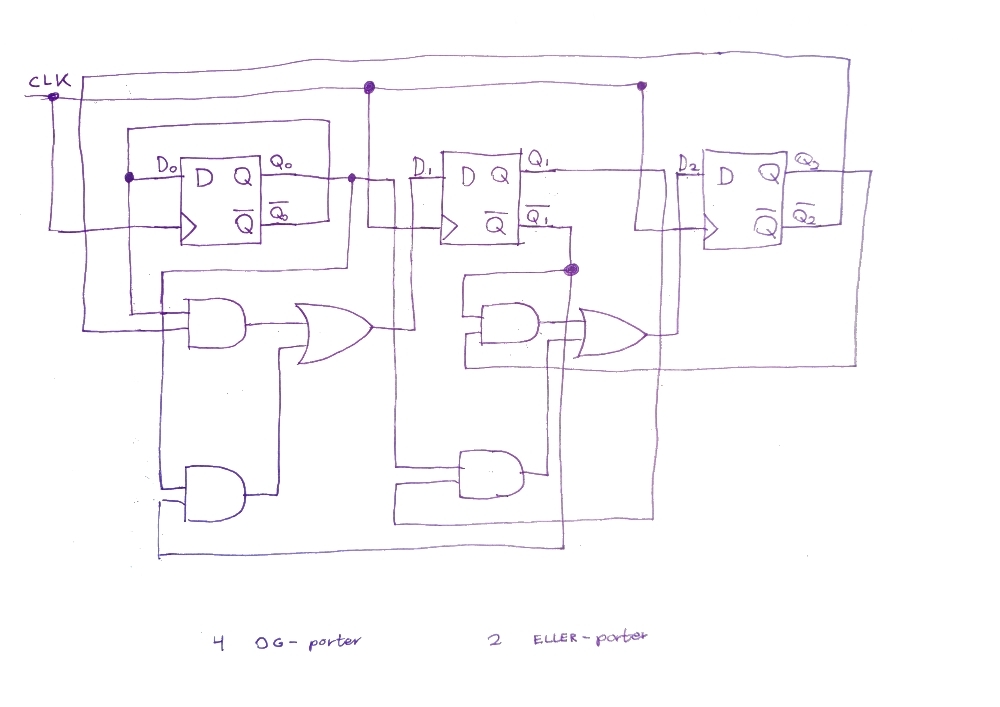 CLK
D₀ D Q Q₀
Q̅ Q̅₀
D₁ D Q Q₁
Q̅ Q̅₁
D₂ D Q Q₂
Q̅ Q̅₂
4 OG-porter 2 ELLER-porter